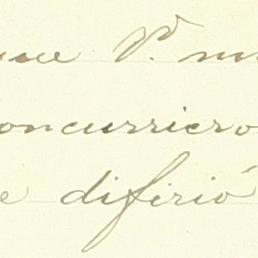 que V. m
concurriero
e difirió